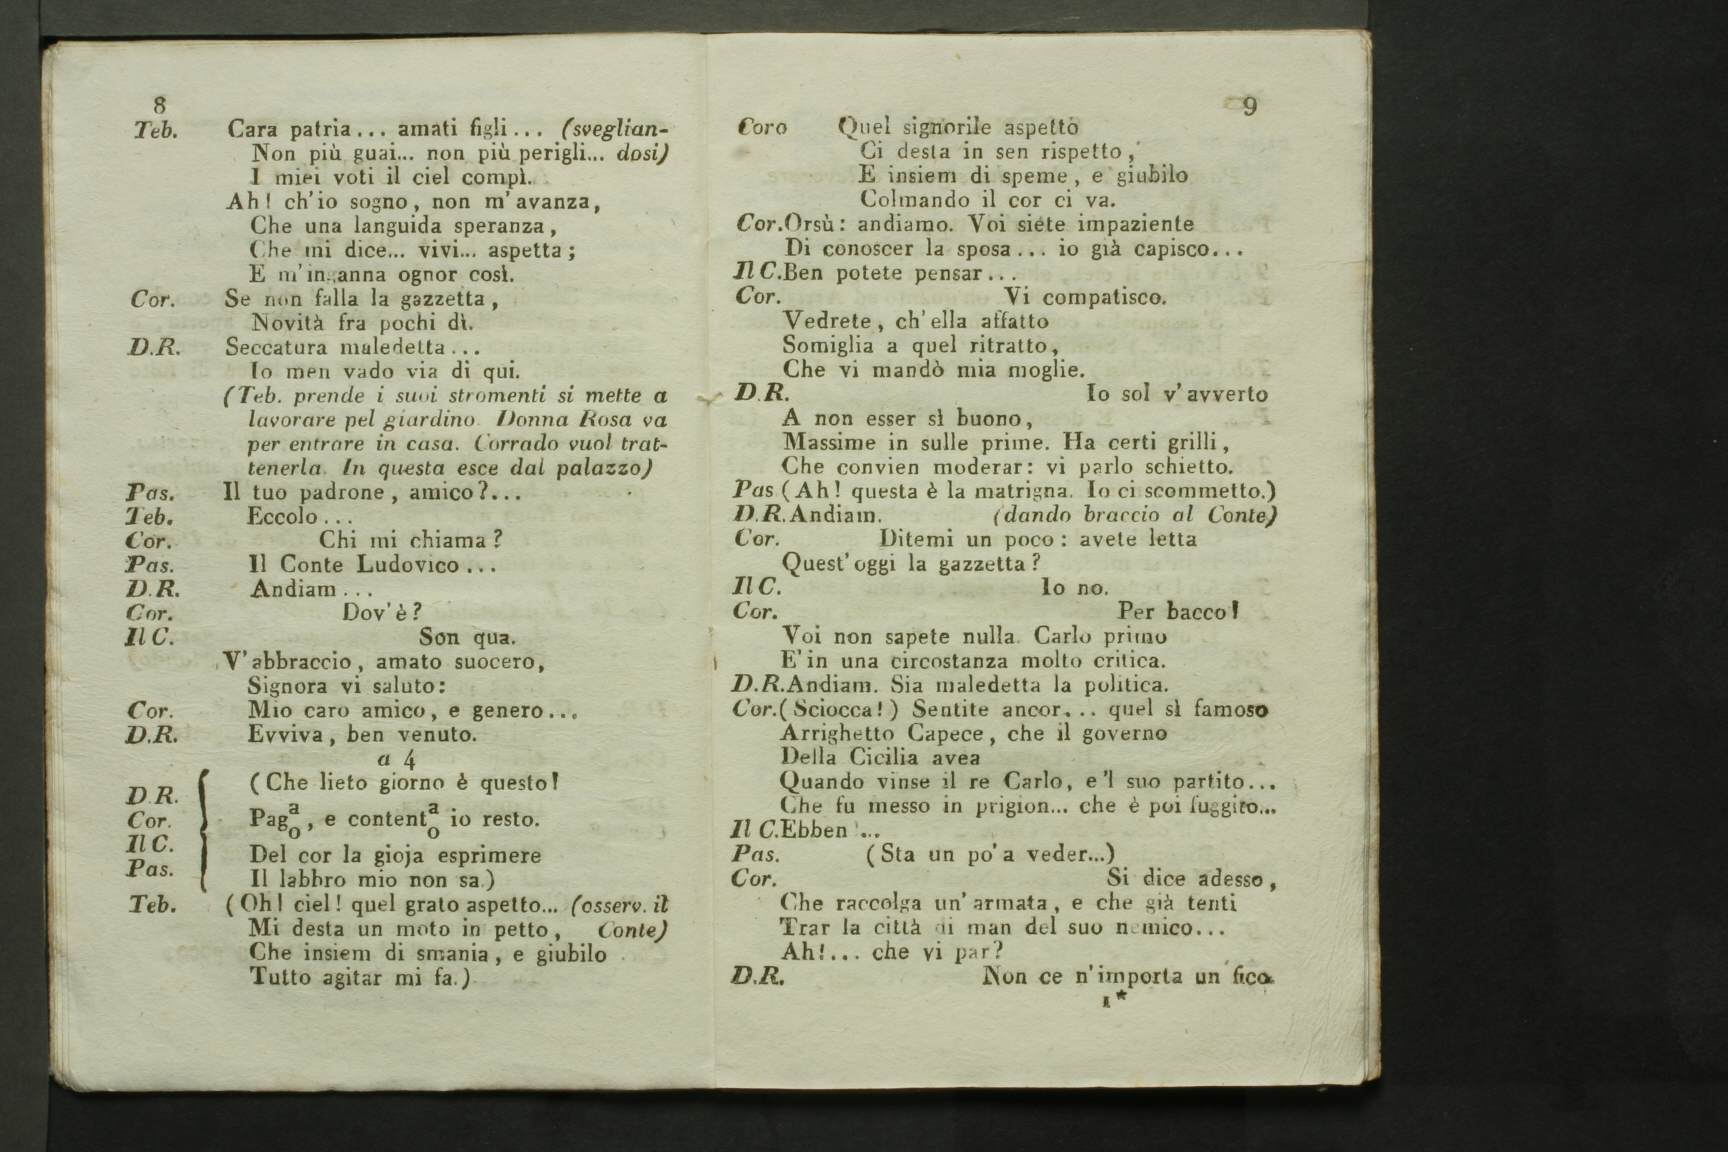 8
Teb. Cara patria... amati figli... (sveglian-
Non più guai... non più perigli... dosi)
I miei voti il ciel compì.
Ah! ch'io sogno, non m'avanza,
Che una languida speranza,
Che mi dice... vivi... aspetta;
E m'inganna ognor così.
Cor. Se non falla la gazzetta,
Novità fra pochi dì.
D.R. Seccatura maledetta...
Io men vado via di qui.
(Teb. prende i suoi stromenti si mette a
lavorare pel giardino. Donna Rosa va
per entrare in casa. Corrado vuol trat-
tenerla. In questa esce dal palazzo)
Pas. Il tuo padrone, amico?...
Teb. Eccolo...
Cor. Chi mi chiama?
Pas. Il Conte Ludovico...
D.R. Andiam...
Cor. Dov'è?
Il C. Son qua.
V'abbraccio, amato suocero,
Signora vi saluto:
Cor. Mio caro amico, e genero...
D.R. Evviva, ben venuto.
a 4
D.R. (Che lieto giorno è questo!
Cor. Pag a o, e content a o io resto.
Il C. Del cor la gioja esprimere
Pas. Il labbro mio non sa.)
Teb. (Oh! ciel! quel grato aspetto... (osserv. il
Mi desta un moto in petto, Conte)
Che insiem di smania, e giubilo
Tutto agitar mi fa.)
9
Coro Quel signorile aspetto
Ci desta in sen rispetto,
E insiem di speme, e giubilo
Colmando il cor ci va.
Cor. Orsù: andiamo. Voi siete impaziente
Di conoscer la sposa... io già capisco...
Il C. Ben potete pensar...
Cor. Vi compatisco.
Vedrete, ch'ella affatto
Somiglia a quel ritratto,
Che vi mandò mia moglie.
D.R. Io sol v'avverto
A non esser sì buono,
Massime in sulle prime. Ha certi grilli,
Che convien moderar: vi parlo schietto.
Pas (Ah! questa è la matrigna. Io ci scommetto.)
D.R. Andiam. (dando braccio al Conte)
Cor. Ditemi un poco: avete letta
Quest'oggi la gazzetta?
Il C. Io no.
Cor. Per bacco!
Voi non sapete nulla. Carlo primo
E' in una circostanza molto critica.
D.R. Andiam. Sia maledetta la politica.
Cor. (Sciocca!) Sentite ancor... quel sì famoso
Arrighetto Capece, che il governo
Della Cicilia avea
Quando vinse il re Carlo, e 'l suo partito...
Che fu messo in prigion... che è poi fuggito...
Il C. Ebben...
Pas. (Sta un po' a veder...)
Cor. Si dice adesso,
Che raccolga un'armata, e che già tenti
Trar la città di man del suo nemico...
Ah!... che vi par?
D.R. Non ce n'importa un fico
1*